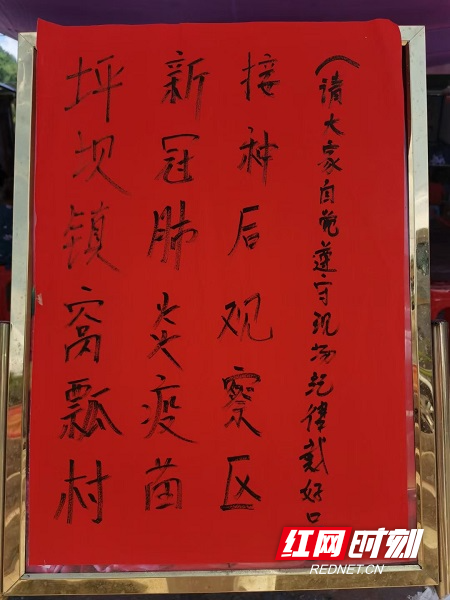 坪坝镇窝瓢村
新冠肺炎疫苗
接种后观察区
（请大家自觉遵守现场纪律戴好口
红网时刻
REDNET.CN